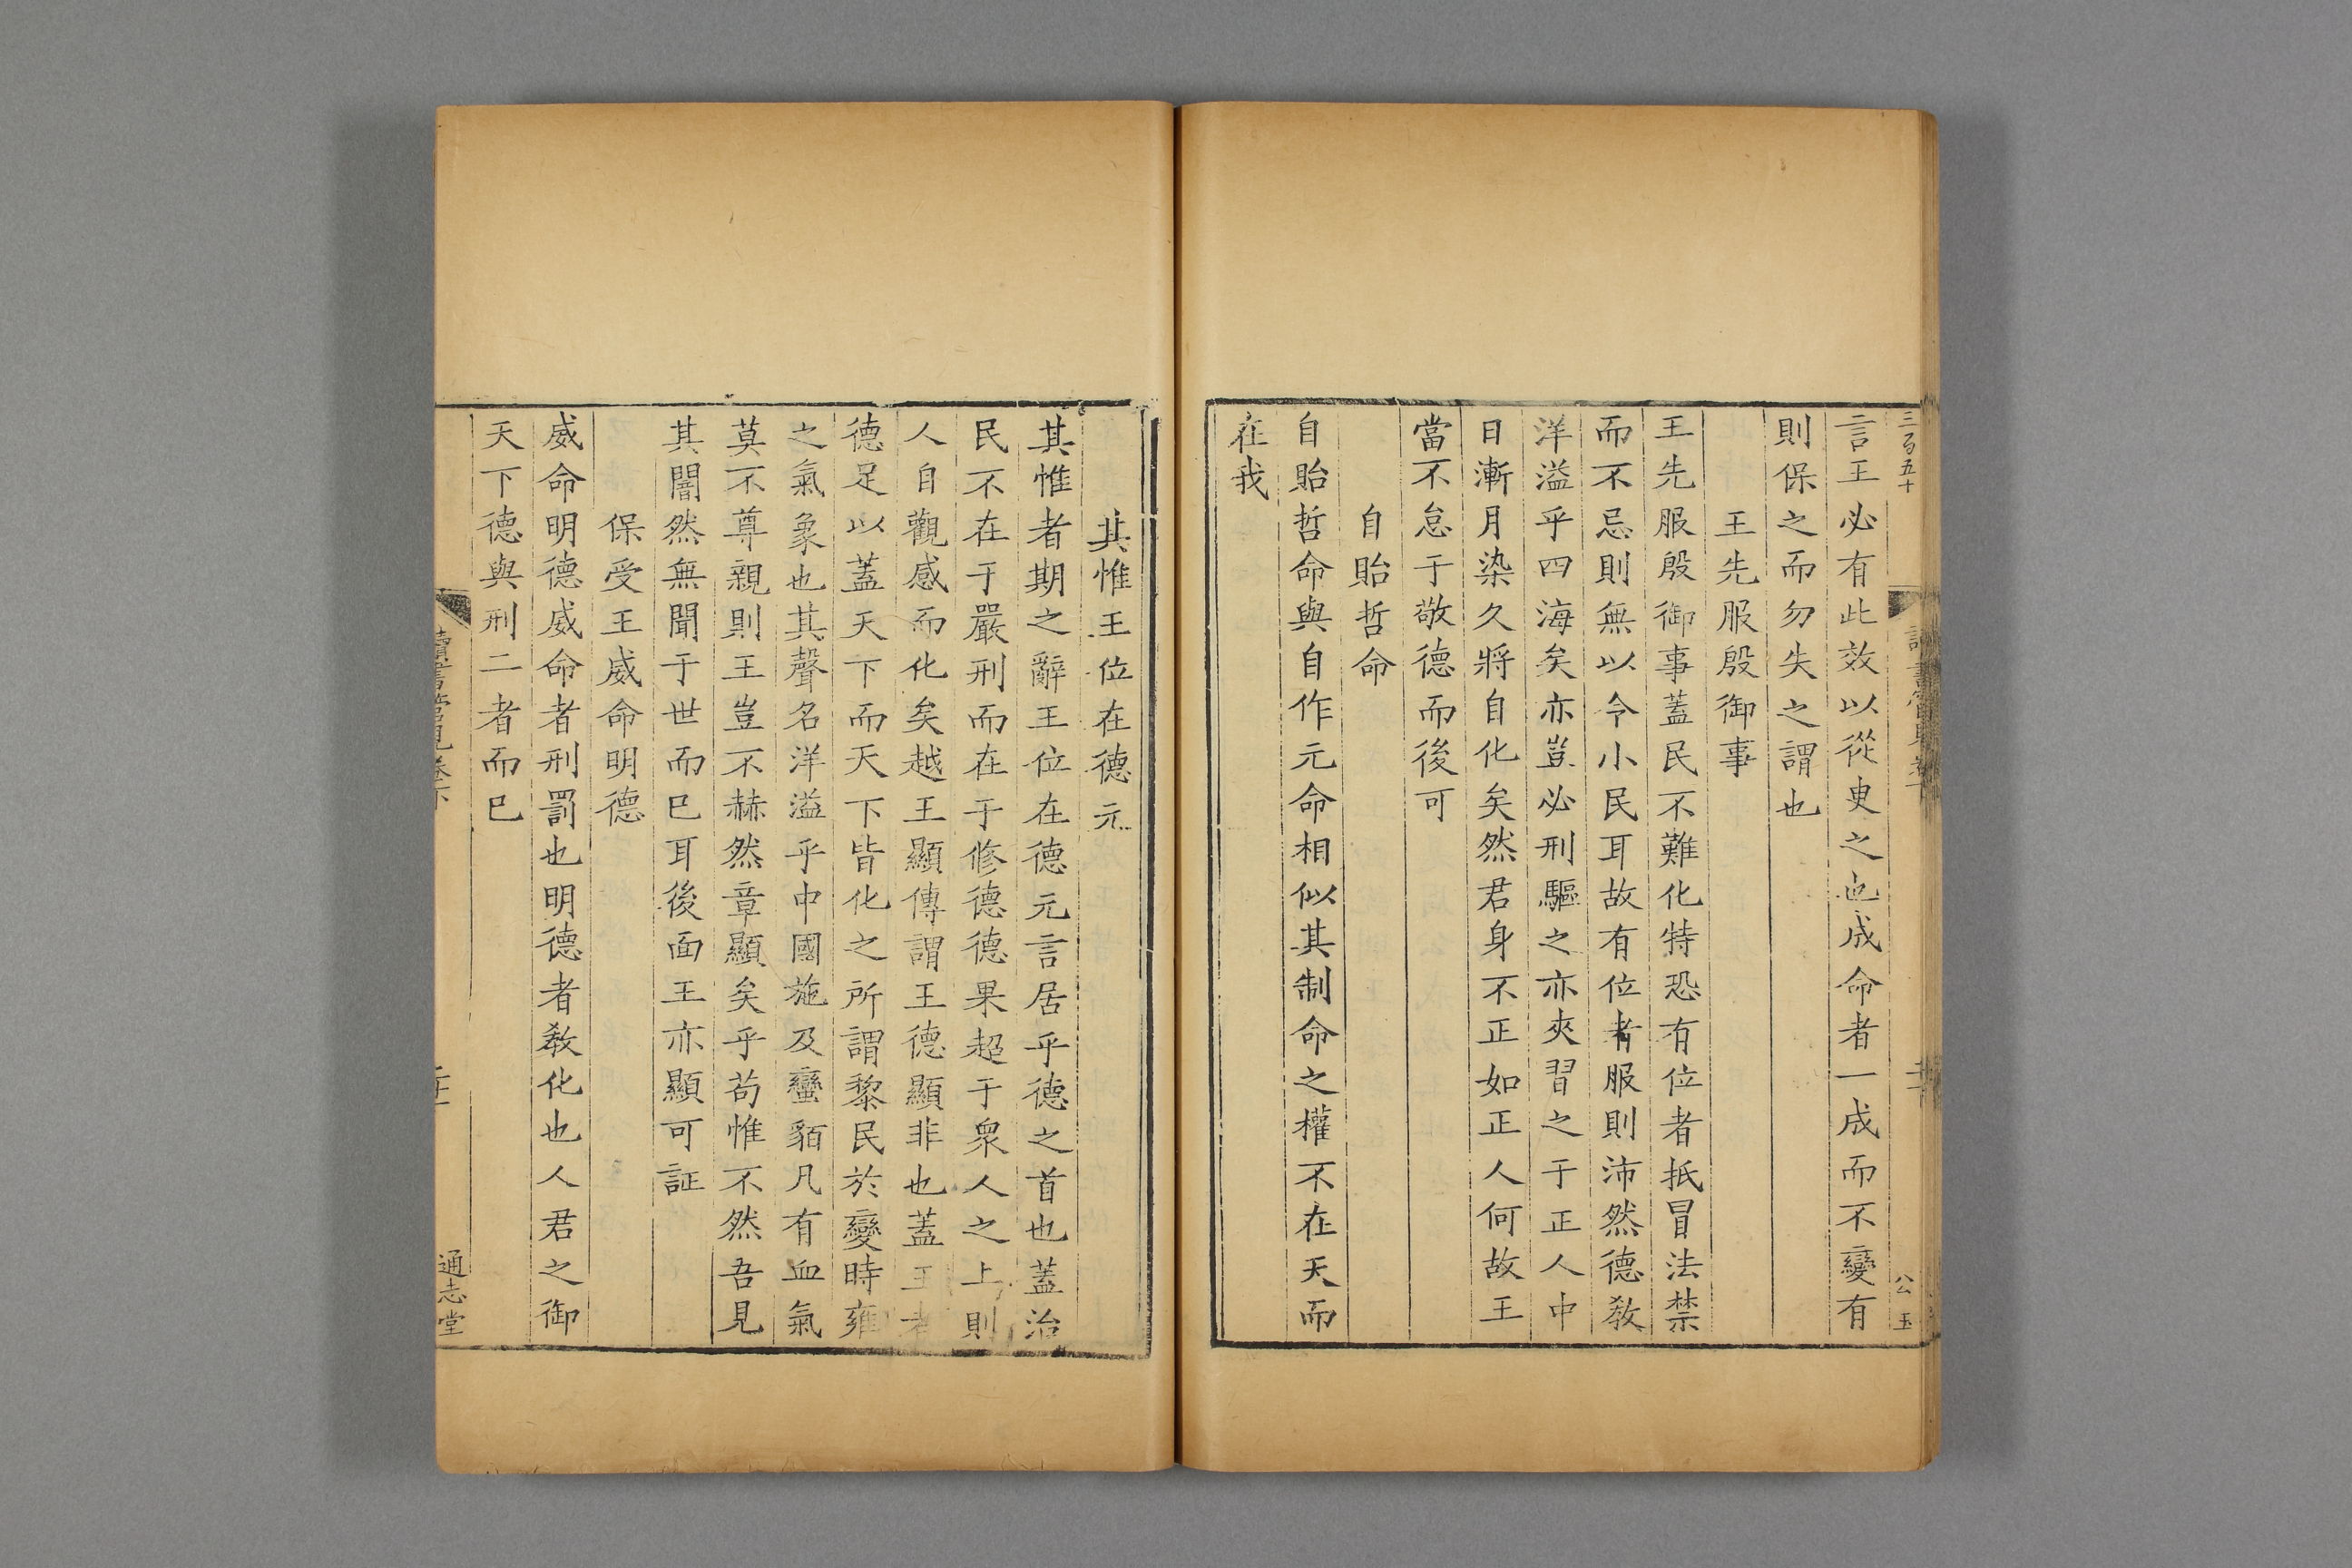 三百五十
公玉
言王必有此效以從吏之也成命者一成而不變有
則保之而勿失之謂也
王先服殷御事
王先服殷御事蓋民不難化特恐有位者抵冒法禁
而不忌則無以令小民耳故有位者服則沛然德教
洋溢乎四海矣亦豈必刑驅之亦夾習之于正人中
日漸月染久將自化矣然君身不正如正人何故王
當不怠于敬德而後可
自貽哲命
自貽哲命與自作元命相似其制命之權不在天而
在我
其惟王位在德元
其惟者期之辭王位在德元言居乎德之首也蓋治
民不在于嚴刑而在于修德德果超于衆人之上則
人自觀感而化矣越王顯傳謂王德顯非也蓋王者
德足以蓋天下而天下皆化之所謂黎民於變時雍
之氣象也其聲名洋溢乎中國施及蠻貊凡有血氣
莫不尊親則王豈不赫然章顯矣乎苟惟不然吾見
其闇然無聞于世而已耳後面王亦顯可証
保受王威命明德
威命明德威命者刑罰也明德者教化也人君之御
天下德與刑二者而已
讀書管見卷下
通志堂